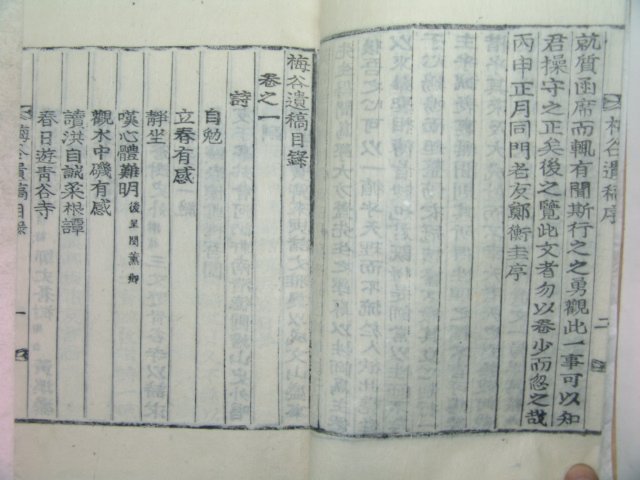 梅谷遺稿序
二
就質函席而輒有聞斯行之之勇觀此一事可以知
君操守之正矣後之覽此文者勿以卷少而忽之哉
丙申正月同門老友鄭衡圭序
梅谷遺稿目錄
卷之一
詩
自勉
立春有感
靜坐
嘆心體難明 後呈閔薰卿
觀木中磯有感
讀洪自誠菜根譚
春日遊靑谷寺
梅谷遺稿目錄
一